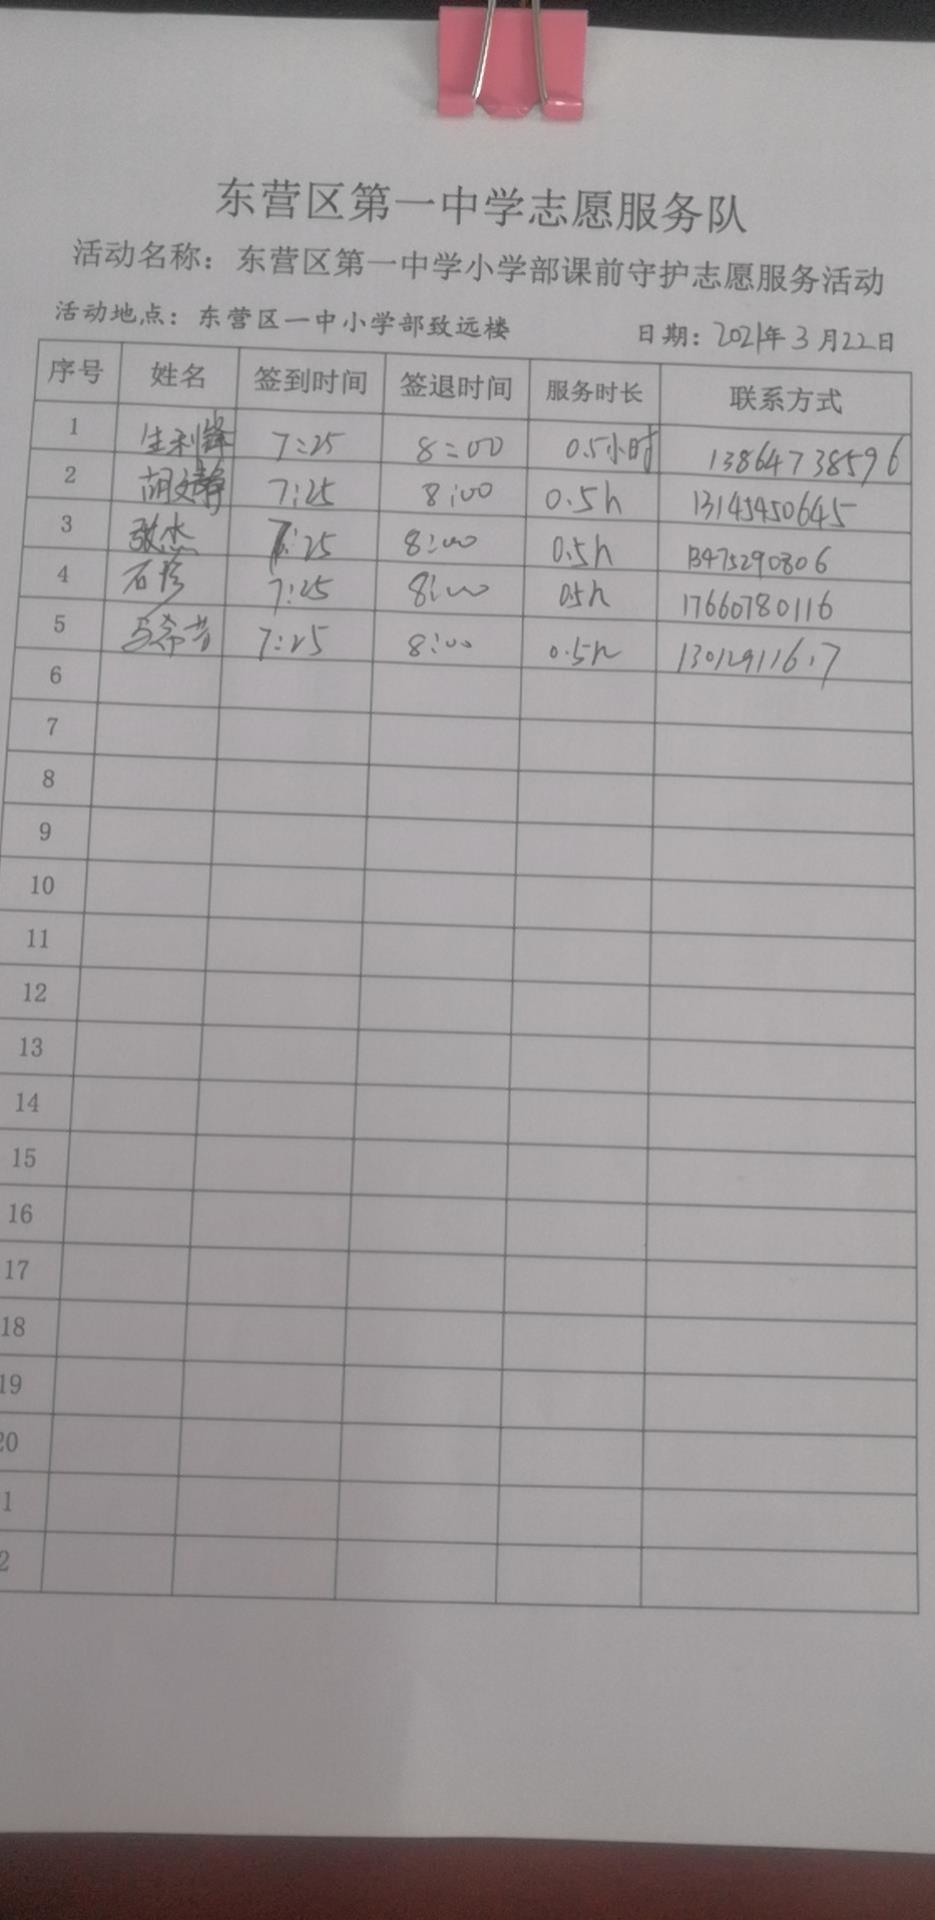 东营区第一中学志愿服务队
活动名称：东营区第一中学小学部课前守护志愿服务活动
活动地点：东营区一中小学部致远楼 日期：2021年3月22日
序号 姓名 签到时间 签退时间 服务时长 联系方式
1 生利锋 7:25 8:00 0.5小时 13864738596
2 胡文静 7:25 8:00 0.5h 13145450645
3 张杰 7:25 8:00 0.5h 13475290806
4 石珍 7:25 8:00 05h 17660780116
5 7:25 8:00 0.5h
6
7
8
9
10
11
12
13
14
15
16
17
18
19
20
1
2